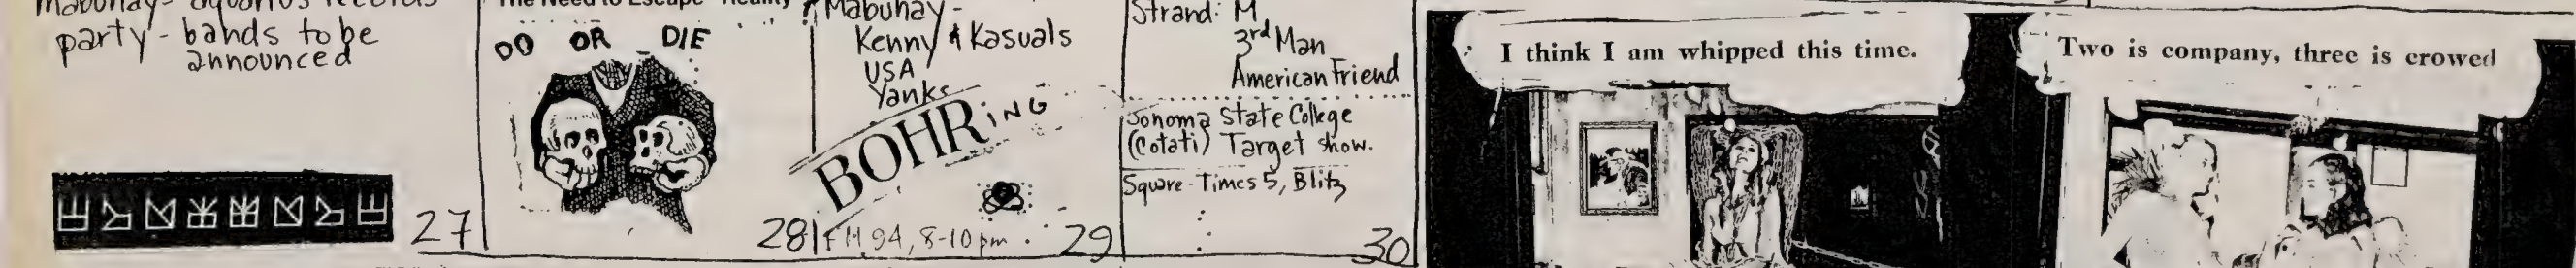 Mabuhay - aquarius records
party - bands to be
announced
27
The Need to Escape "Reality"
DO OR DIE
28
Mabuhay -
Kenny & Kasuals
USA
Yanks
BOHRING
FM 94, 8-10pm.
29
Strand: M
3rd Man
American Friend
Sonoma State College
(Cotati) Target show.
Square - Times 5, Blitz
30
I think I am whipped this time.
Two is company, three is crowed